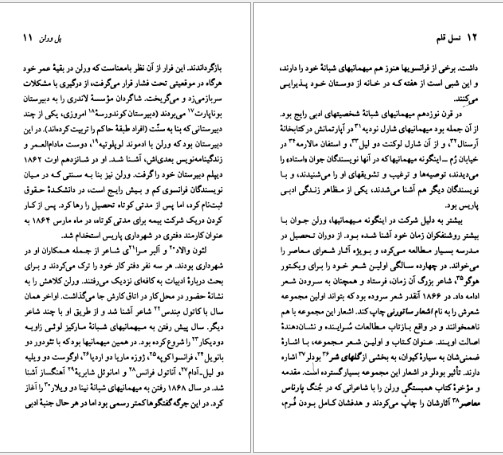 پل ورلن ۱۱
بازگرداندند. این فرار از آن نظر بامعناست که ورلن در بقیهٔ عمر خود
هرگاه در موقعیتی تحت فشار قرار می‌گرفت، از درگیری با مشکلات
سرباز می‌زد و می‌گریخت. شاگردان مؤسسهٔ لاندری را به دبیرستان
بوناپارت۱۷ می‌بردند (دبیرستان کوندورسهٔ۱۸ امروزی، یکی از چند
دبیرستانی که بنا به سنت افراد طبقهٔ حاکم را تربیت کرده‌اند). در این
دبیرستان بود که ورلن با ادموند لوپلوتیه۱۹، دوست مادام‌العمر و
زندگینامه‌نویس بعدی‌اش، آشنا شد. او در شانزدهم اوت ۱۸۶۲
دیپلم دبیرستان خود را گرفت. ورلن نیز بنا به سنتی که در میان
نویسندگان فرانسوی کم و بیش رایج است، در دانشکدهٔ حقوق
ثبت‌نام کرد، اما پس از مدتی کوتاه تحصیل را رها کرد. پس از کار
کردن در یک شرکت بیمه برای مدتی کوتاه، در ماه مارس ۱۸۶۴ به
عنوان کارمند دفتری در شهرداری پاریس استخدام شد.
لئون والاد۲۰ و آلبر مرا۲۱ی شاعر از جمله همکاران او در
شهرداری بودند. هر سه نفر دفتر کار خود را ترک می‌کردند و برای
بحث دربارهٔ ادبیات به کافه‌ای نزدیک می‌رفتند. ورلن کلاهش را به
نشانهٔ حضور در محل کار در اتاق کارش جا می‌گذاشت. اواخر همان
سال با کاتول مندس۲۲ شاعر آشنا شد و از طریق او با چند شاعر
دیگر. سال پیش رفتن به میهمانیهای شبانهٔ مارکیز لوئی زاویه
دوریکار۲۳ را شروع کرده بود. در همین میهمانیها بود که با تئودور دو
بانویل۲۴، فرانسوا کوپه۲۵، ژوزه ماریا دو اردیا۲۶، اوگوست دو ویلیه
دو لیل-آدام۲۷، آناتول فرانس۲۸ و امانوئل شابریهٔ۲۹ آهنگساز آشنا
شد. در سال ۱۸۶۸ رفتن به میهمانیهای شبانهٔ نینا دو ویلار۳۰ را آغاز
کرد. در این جرگه گفتگوها کمتر رسمی بود اما در هر حال جنبهٔ ادبی
۱۲ نسل قلم
داشت. برخی از فرانسویها هنوز هم میهمانیهای شبانهٔ خود را دارند،
و این شبی است از هفته که در خانه از دوستان خود پذیرایی
می‌کنند.
در قرن نوزدهم میهمانیهای شبانهٔ شخصیتهای ادبی رایج بود.
از آن جمله بود میهمانیهای شارل نودیه۳۱ در آپارتمانش در کتابخانهٔ
آرسنال۳۲، و از آن شارل لوکنت دو لیل۳۳، و استفان مالارمه۳۴ در
خیابان رُم - اینگونه میهمانیها که در آنها نویسندگان جوان «استاد» را
می‌دیدند، توصیه‌ها و ترغیب و تشویقهای او را می‌شنیدند، و با
نویسندگان دیگر هم آشنا می‌شدند، یکی از مظاهر زندگی ادبی
پاریس بود.
بیشتر به دلیل شرکت در اینگونه میهمانیها، ورلن جوان با
بیشتر روشنفکران زمان خود آشنا شده بود. از دوران تحصیل در
مدرسه بسیار مطالعه می‌کرد، و بویژه آثار شعرای معاصر را
می‌خواند. در چهارده سالگی اولین شعر خود را برای ویکتور
هوگو۳۵، شاعر بزرگ آن زمان، فرستاد و همچنان به سرودن شعر
ادامه داد. در ۱۸۶۶ آنقدر شعر سروده بود که بتواند اولین مجموعهٔ
شعرش را به نام اشعار ساتورنی چاپ کند. اشعار این مجموعه با هم
ناهمخوانند و در واقع بازتاب مطالعات سُراینده و نشان‌دهندهٔ
اصالت اویند. عنوان کتاب و اولین شعر مجموعه، با اشارهٔ
ضمنی‌شان به سیارهٔ کیوان، به بخشی از گلهای شر۳۶ بودلر۳۷ اشاره
دارند. تأثیر بودلر در اشعار این مجموعه بسیار گسترده است. مقدمه
و مؤخرهٔ کتاب همبستگی ورلن را با شاعرانی که در جُنگ پارناس
معاصر۳۸ آثارشان را چاپ می‌کردند و هدفشان کامل بودن فُرم،